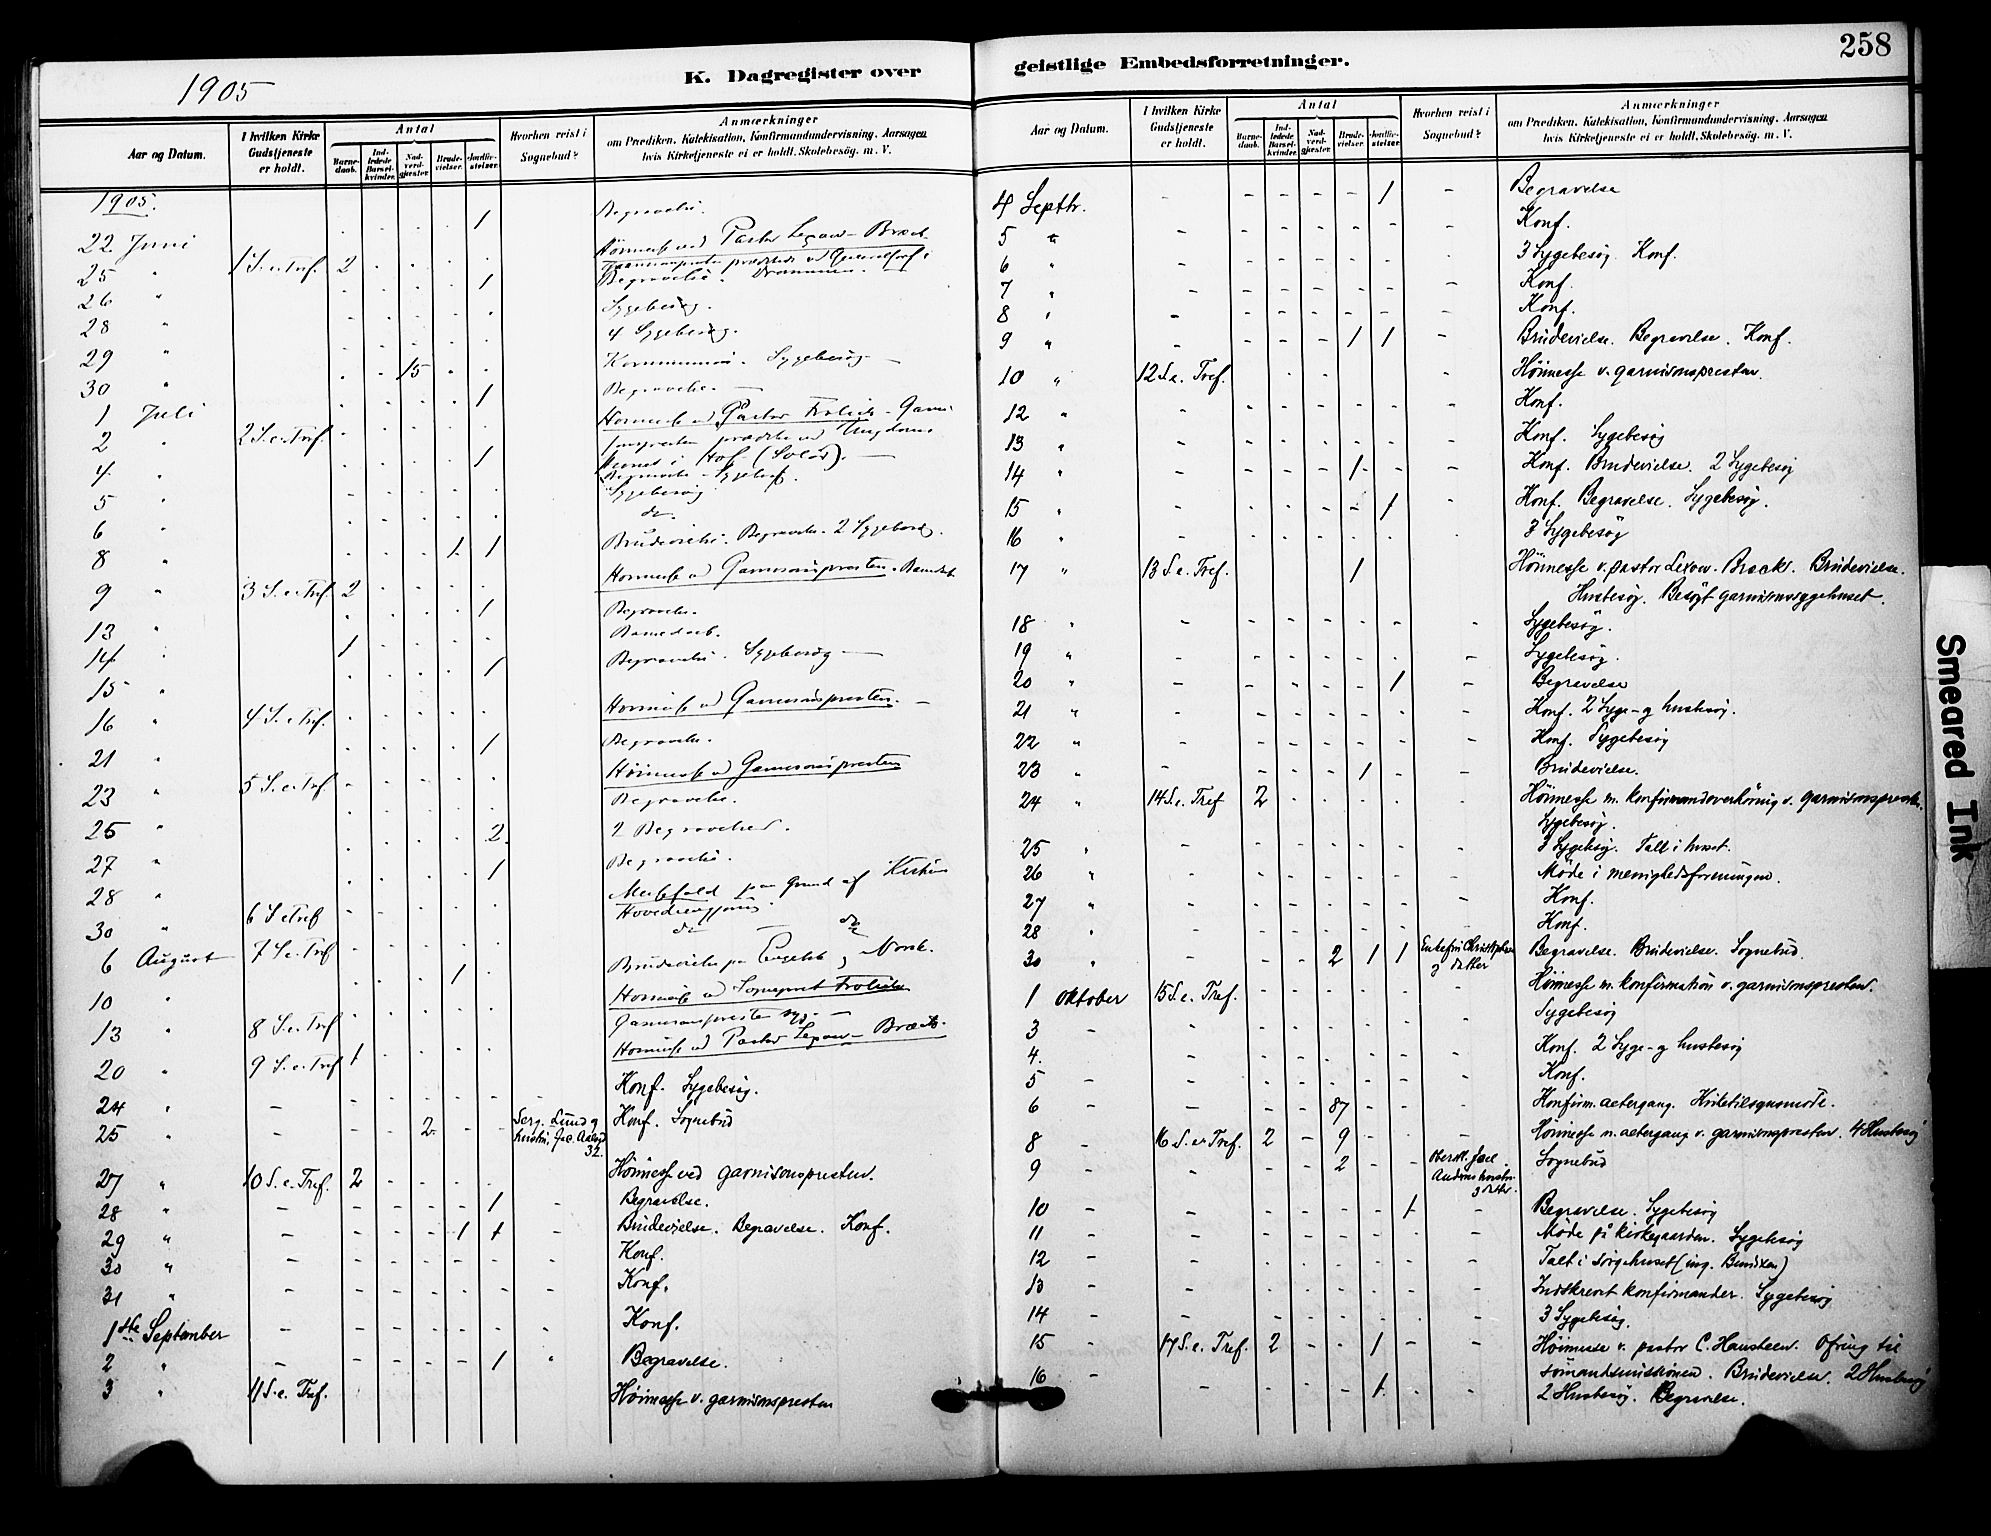 1905
K. Dagregister over
geistlige Embedsforretninger.
258
Aar og Datum.
I hvilken Kirke Gudstjeneste er holdt.
Antal
Barnedaab.
Indledede Barselkvinder.
Nadverdgjæster.
Brudevielser.
Jordfæstelser.
Hvorhen reist i Sognebud?
Anmærkninger
om Prædiken, Katekisation, Konfirmandundervisning, Aarsagen
hvis Kirketjeneste ei er holdt, Skolebesög, m. V.
1905.
22 Juni 1 Begravelse.
25 " 1 S. e. Tref. 2 Høimesse ved Pastor Lexow-Bræck
26 " 1 Begravelse. Drammen.
28 " Sygebesøg.
29 " 4 Sygebesøg.
30 " 15 Kommunion. Sygebesøg
1 Juli 1 Begravelse.
2 " 2 S. e. Tref. Høimesse ved Pastor
prædikede ved Ungdoms
i Hof (Solør).
4 " 1 Begravelse - Sygebesøg.
5 " Sygebesøg
6 " do.
8 " 1 1 Brudevielse. Begravelse. 2 Sygebesøg.
9 " 3 S. e. Tref. 2 Høimesse ved Garnisonspresten. Barnedaab
13 " 1 Begravelse.
14 " 1 Barnedaab.
15 " 1 Begravelse. Sygebesøg
16 " 4 S. e. Tref. Høimesse ved Garnisonspresten.
21 " 1 Begravelse.
23 " 5 S. e. Tref. Høimesse ved Garnisonspresten
25 " Begravelse.
27 " 2 2 Begravelser.
28 " 1 Begravelse.
30 " 6 S. e. Tref Messefald paa Grund af Kirkens
Hovedrengjøring.
6 August 7 S. e. Tref do do
10 " 1 Brudevielse paa Engelsk og Norsk.
13 " 8 S. e. Tref Høimesse ved Sognepræst
Garnisonspresten syg.
20 " 9 S. e. Tref 1 Høimesse ved Pastor Lexow-Bræck.
24 " - Konf. Sygebesøg.
25 " 2 Serg. Lund og Konf. Sognebud
27 " 10 S. e. Tref. 2 Høimesse ved garnisonspresten.
28 " 1 Begravelse.
29 " 1 1 Brudevielse. Begravelse. Konf.
30 " Konf.
31 " Konf.
1ste September Konf.
2 " 1 Begravelse.
3 " 11 S. e. Tref. Høimesse v. garnisonspresten
Aar og Datum.
I hvilken Kirke Gudstjeneste er holdt.
Antal
Barnedaab.
Indledede Barselkvinder.
Nadverdgjæster.
Brudevielser.
Jordfæstelser.
Hvorhen reist i Sognebud?
Anmærkninger
om Prædiken, Katekisation, Konfirmandundervisning, Aarsagen
hvis Kirketjeneste ei er holdt, Skolebesög, m. V.
4 Septbr. 1 Begravelse
5 " Konf.
6 " 3 Sygebesøg. Konf.
7 " Konf.
8 " Konf.
9 " 1 1 Brudevielse. Begravelse. Konf.
10 " 12 S. e. Tref. Høimesse v. garnisonspresten.
12 " Konf.
13 " Konf. Sygebesøg
14 " 1 Konf. Brudevielse. 2 Sygebesøg
15 " 1 Konf. Begravelse. Sygebesøg.
16 " 3 Sygebesøg
17 " 13 S. e. Tref. 1 Høimesse v. pastor Lexow-Bræck. Brudevielse.
Husbesøg. Besøgt garnisonssygehuset.
18 " Sygebesøg.
19 " Sygebesøg.
20 " 1 Begravelse
21 " Konf. 2 Syge- og husbesøg.
22 " Konf. Sygebesøg
23 " 1 Brudevielse.
24 " 14 S. e. Tref 2 Høimesse m. konfirmandoverhøring v. garnisonspresten.
Sygebesøg.
25 " 3 Sygebesøg. Talt i huset.
26 " Møde i menighedsforeningen.
27 " Konf.
28 " Konf.
30 " 2 1 1 Enkefru Christophersen og datter Begravelse. Brudevielse. Sognebud.
1 Oktober 15 S. e. Tref. Høimesse m. konfirmation v. garnisonspresten.
3 - Sygebesøg
4. Konf. 2 Syge- og husbesøg
5 - Konf.
6 - 87 Konfirm. altergang. Kirketilsynsmøde.
8 - 16 S. e. Tref. 2 - 9 Høimesse m. altergang v. garnisonspresten. 4 Husbesøg
9 - 2 og datter. Sognebud
10 - 1 Begravelse. Sygebesøg
11 - Møde på kirkegaarden. Sygebesøg
12 - Talt i sørgehuset (ing. Bendixen)
13 - Indskrevet konfirmander. Sygebesøg
14 - 3 Sygebesøg.
15 - 17 S. e. Tref. 2 1 Høimesse v. pastor C. Hansteen. Ofring til
sømandsmissionen. Brudevielse. 2 Husbesøg
16 - 1 2 Husbesøg. Begravelse.
Smeared Ink